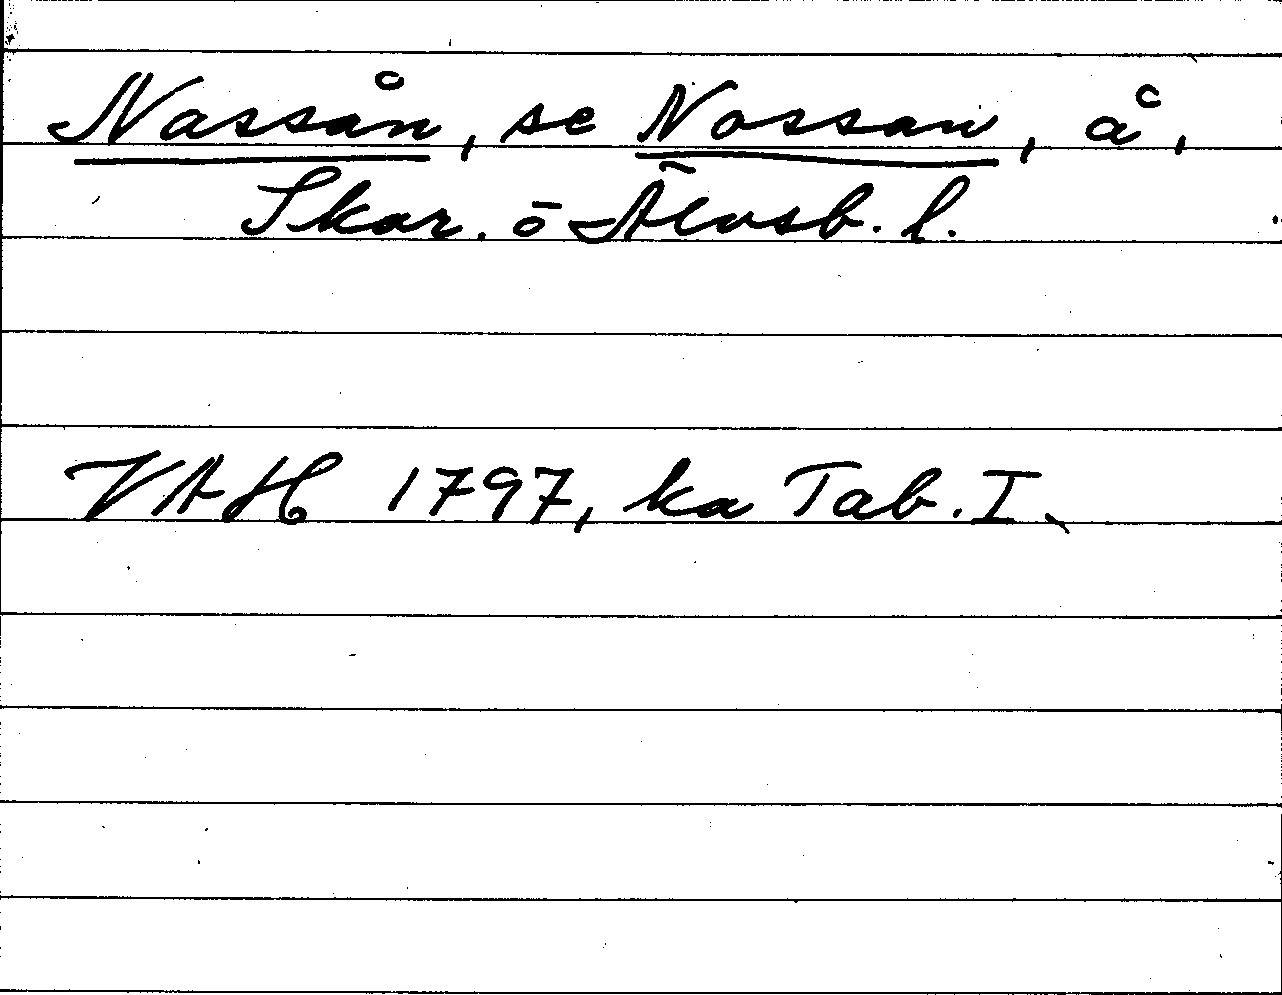 Nassån, se Nossan, å,
Skar. o Älvsb. l.
VAH 1797, ka Tab. I.